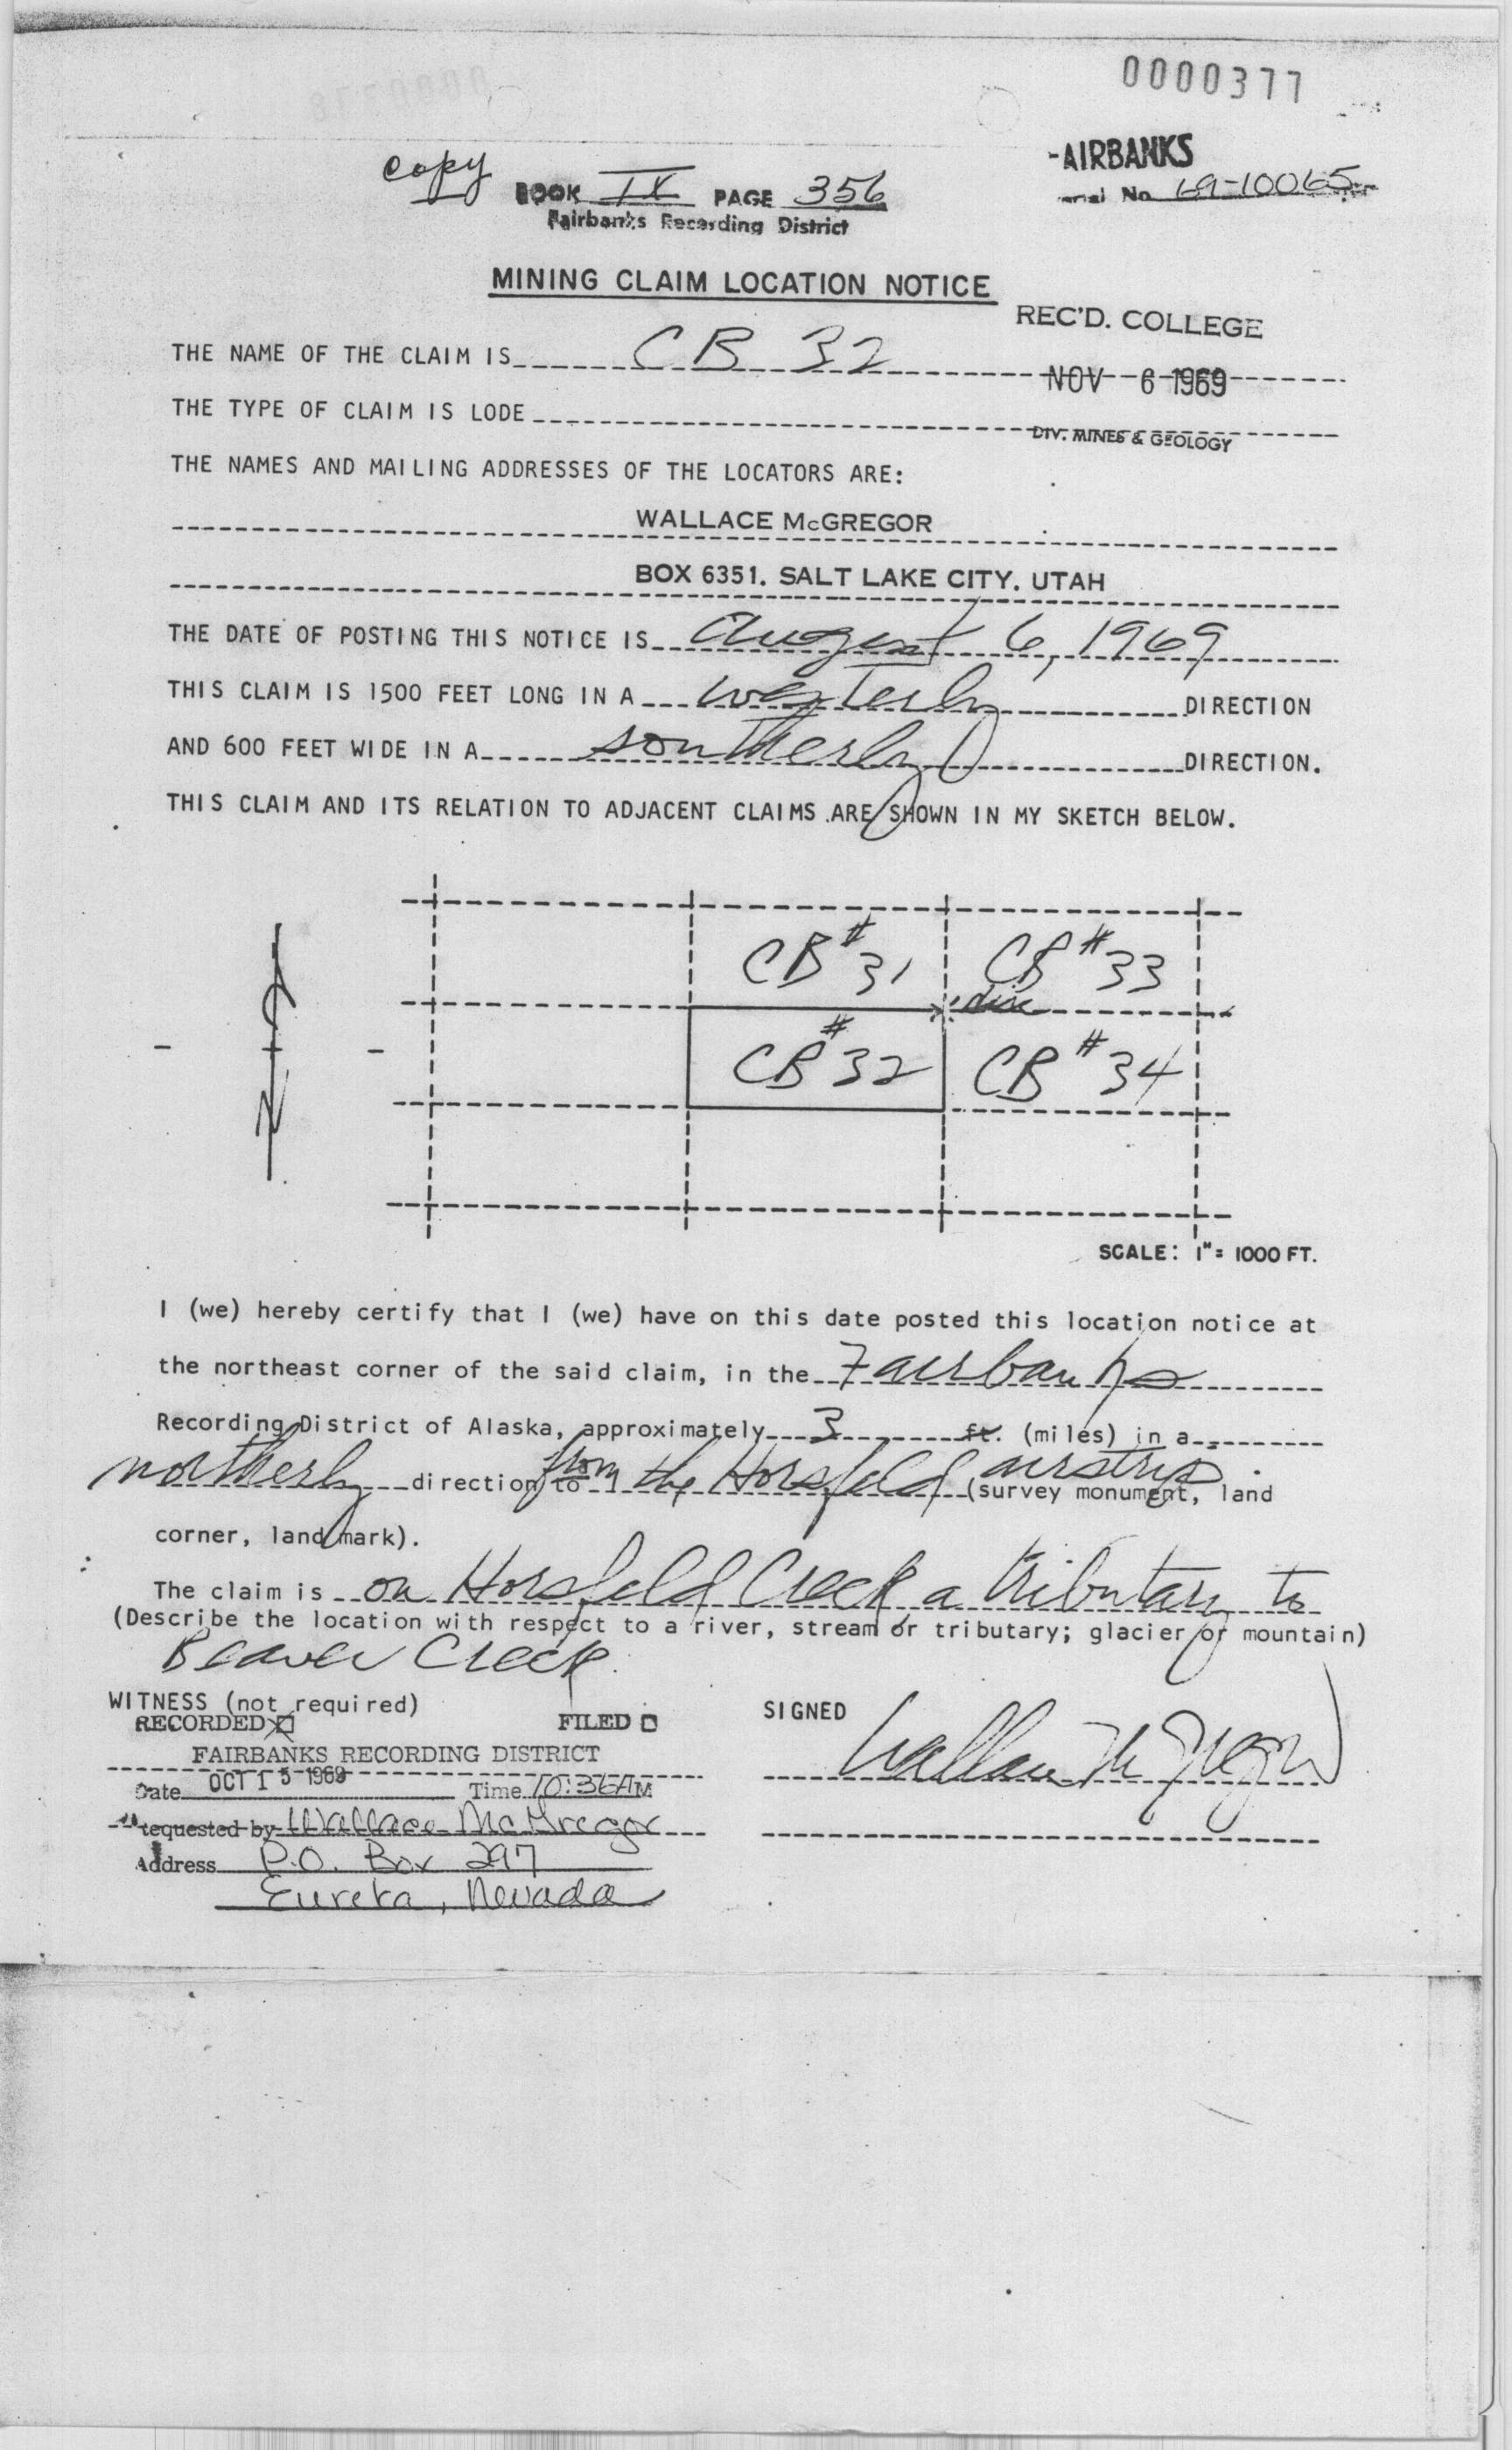 0000377
copy
-AIRBANKS
BOOK IX PAGE 356
erial No 69-10065
Fairbanks Recording District
MINING CLAIM LOCATION NOTICE
REC'D. COLLEGE
THE NAME OF THE CLAIM IS CB 32
NOV 6 1969
THE TYPE OF CLAIM IS LODE
DIV. MINES & GEOLOGY
THE NAMES AND MAILING ADDRESSES OF THE LOCATORS ARE:
WALLACE McGREGOR
BOX 6351. SALT LAKE CITY. UTAH
THE DATE OF POSTING THIS NOTICE IS August 6, 1969
THIS CLAIM IS 1500 FEET LONG IN A westerly DIRECTION
AND 600 FEET WIDE IN A southerly DIRECTION.
THIS CLAIM AND ITS RELATION TO ADJACENT CLAIMS ARE SHOWN IN MY SKETCH BELOW.
CB #31 CB #33
disc
CB #32 CB #34
N
SCALE: 1"= 1000 FT.
I (we) hereby certify that I (we) have on this date posted this location notice at
the northeast corner of the said claim, in the Fairbanks
Recording District of Alaska, approximately 3 ft. (miles) in a
northerly direction to from the Horsfeld airstrip (survey monument, land
corner, land mark).
The claim is on Horsfeld Creek a tributary to
(Describe the location with respect to a river, stream or tributary; glacier or mountain)
Beaver Creek
WITNESS (not required)
SIGNED Wallace McGregor
RECORDED FILED
FAIRBANKS RECORDING DISTRICT
Date OCT 15 1969 Time 10:36AM
Requested by Wallace McGregor
Address P.O. Box 297
Eureka, Nevada